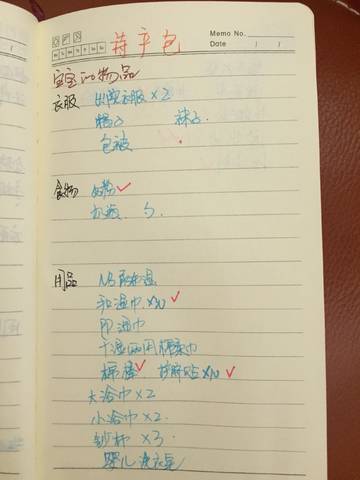 待产包
Memo No.
Date / /
宝宝的物品
衣服 出院衣服×2
帽子 袜子
包被
食物 奶粉✓
奶瓶、勺
用品 NB
和湿巾×N✓
湿巾
干湿两用棉柔巾
棉 ✓ 护脐贴×N✓
大浴巾×2
小浴巾×2
纱布×3
婴儿洗衣皂